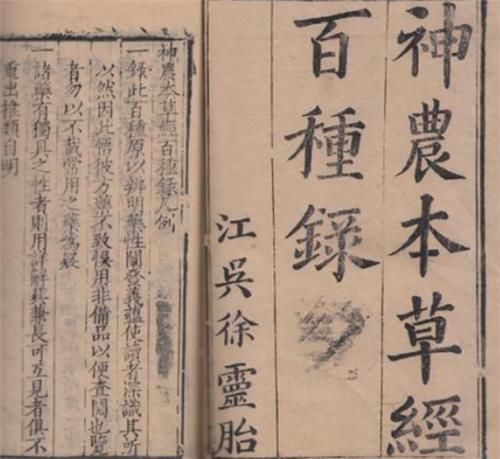 神農本草經
百種錄
江吳徐靈胎
神農本草經百種錄凡例
一錄此百種原以辨明藥性闡發義蘊使讀者深識其所
以然因此悟彼方藥不致悞用非備品以便查閱也覽
者勿以不載常用之藥為疑
一諸藥有獨具之性者則用詳解其兼長可互見者俱不
重出推類自明